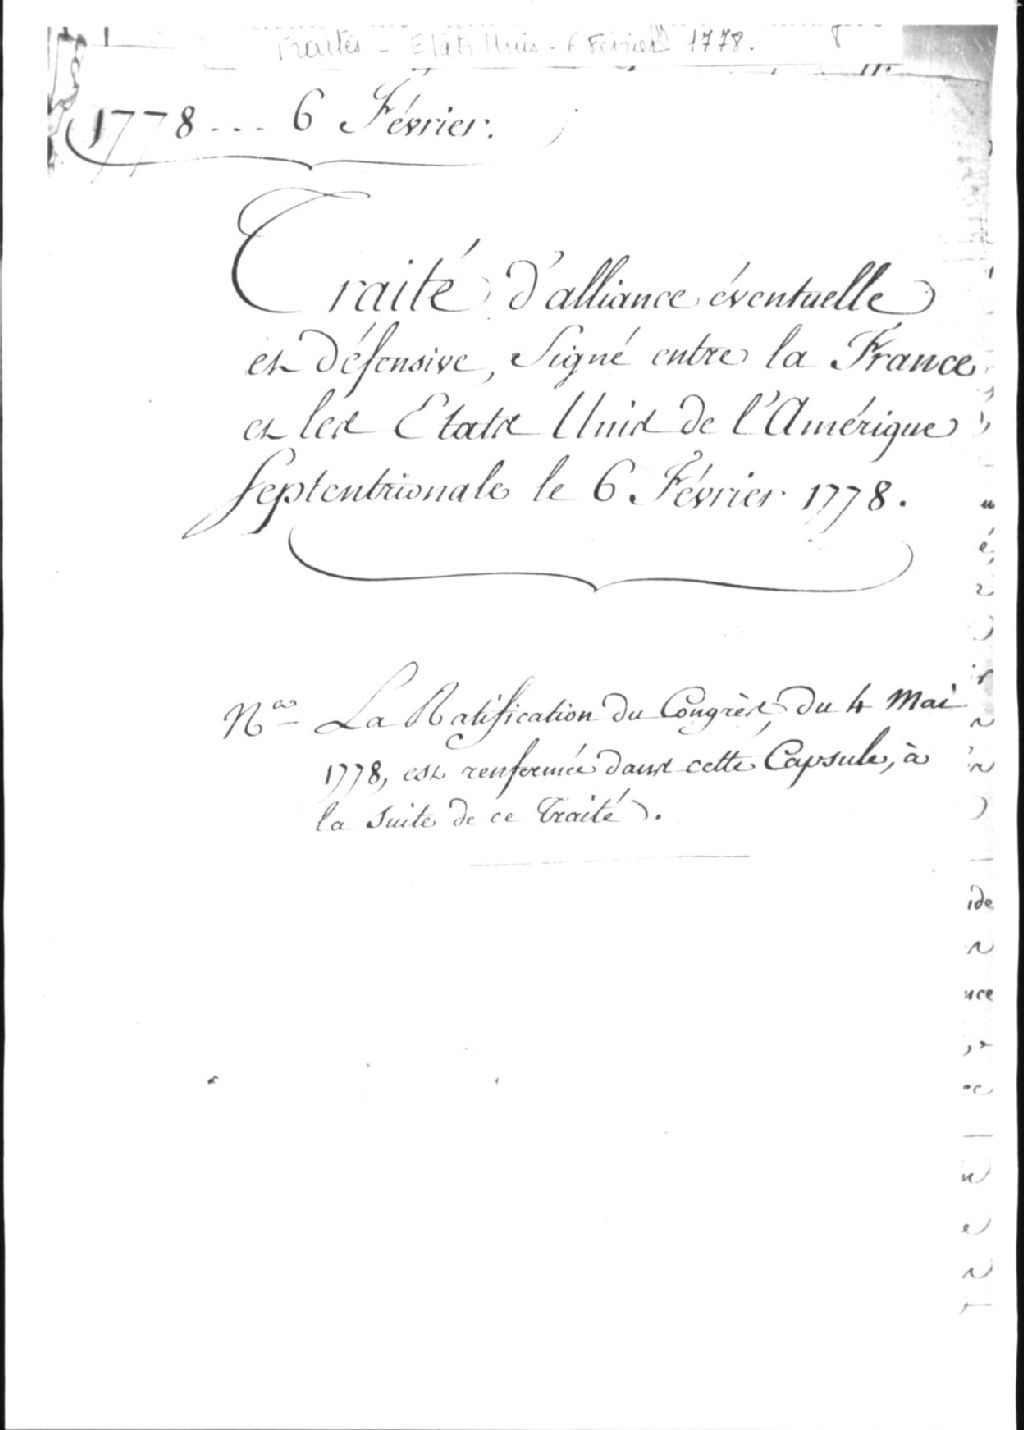 Traités - Etats Unis - 6 Février 1778.
1778 ... 6 Février.
Traité d'alliance éventuelle
et défensive, signé entre la France
et les Etats Unis de l'Amérique
septentrionale le 6 Février 1778.
Nᵃ La Ratification du Congrès, du 4 Mai
1778, est renfermée dans cette Capsule, à
la suite de ce Traité.